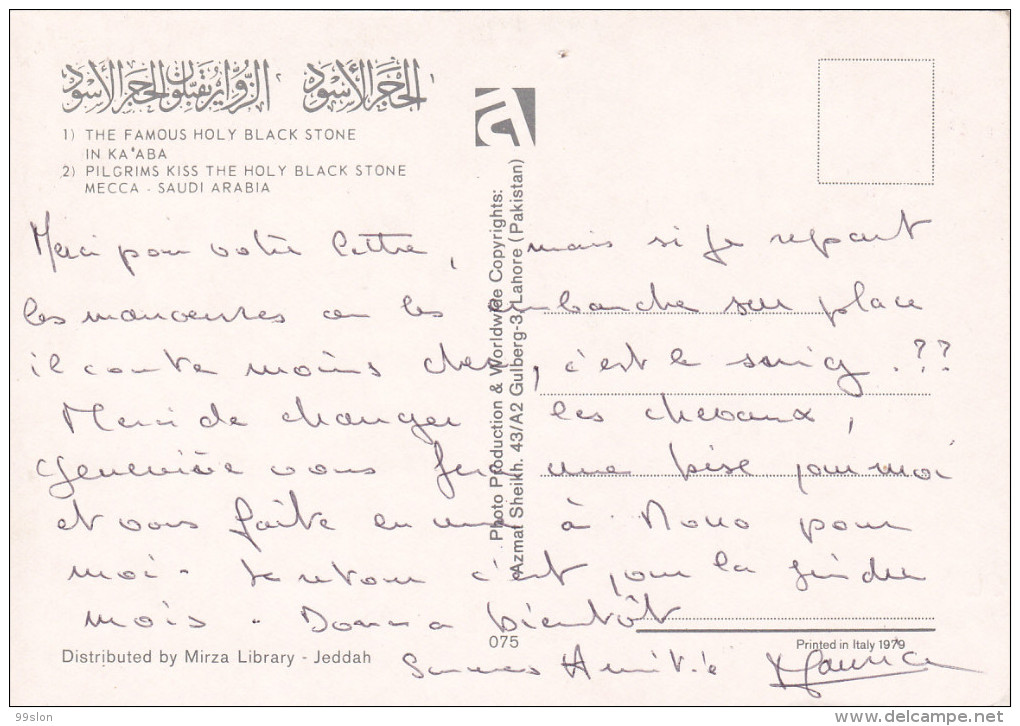 الحجر الأسود ' الزوار يقبلون الحجر الأسود '
1) THE FAMOUS HOLY BLACK STONE
IN KA'ABA
2) PILGRIMS KISS THE HOLY BLACK STONE
MECCA - SAUDI ARABIA
Photo Production & Worldwide Copyrights:
Azmat Sheikh. 43/A2 Gulberg-3, Lahore (Pakistan)
Merci pour votre lettre, mais si je repart
les manoeuvres on les embauche sur place
il coute moins cher, c'est le ??
Merci de changer les chevaux,
Geneviève vous fera une bise pour moi
et vous faite en une à Nono pour
moi. Le retour c'est pour la fin du
mois. Donc a bientôt
Sincères Amitié Maurice
075
Printed in Italy 1979
Distributed by Mirza Library - Jeddah
99slon
DELCAMPE.NET